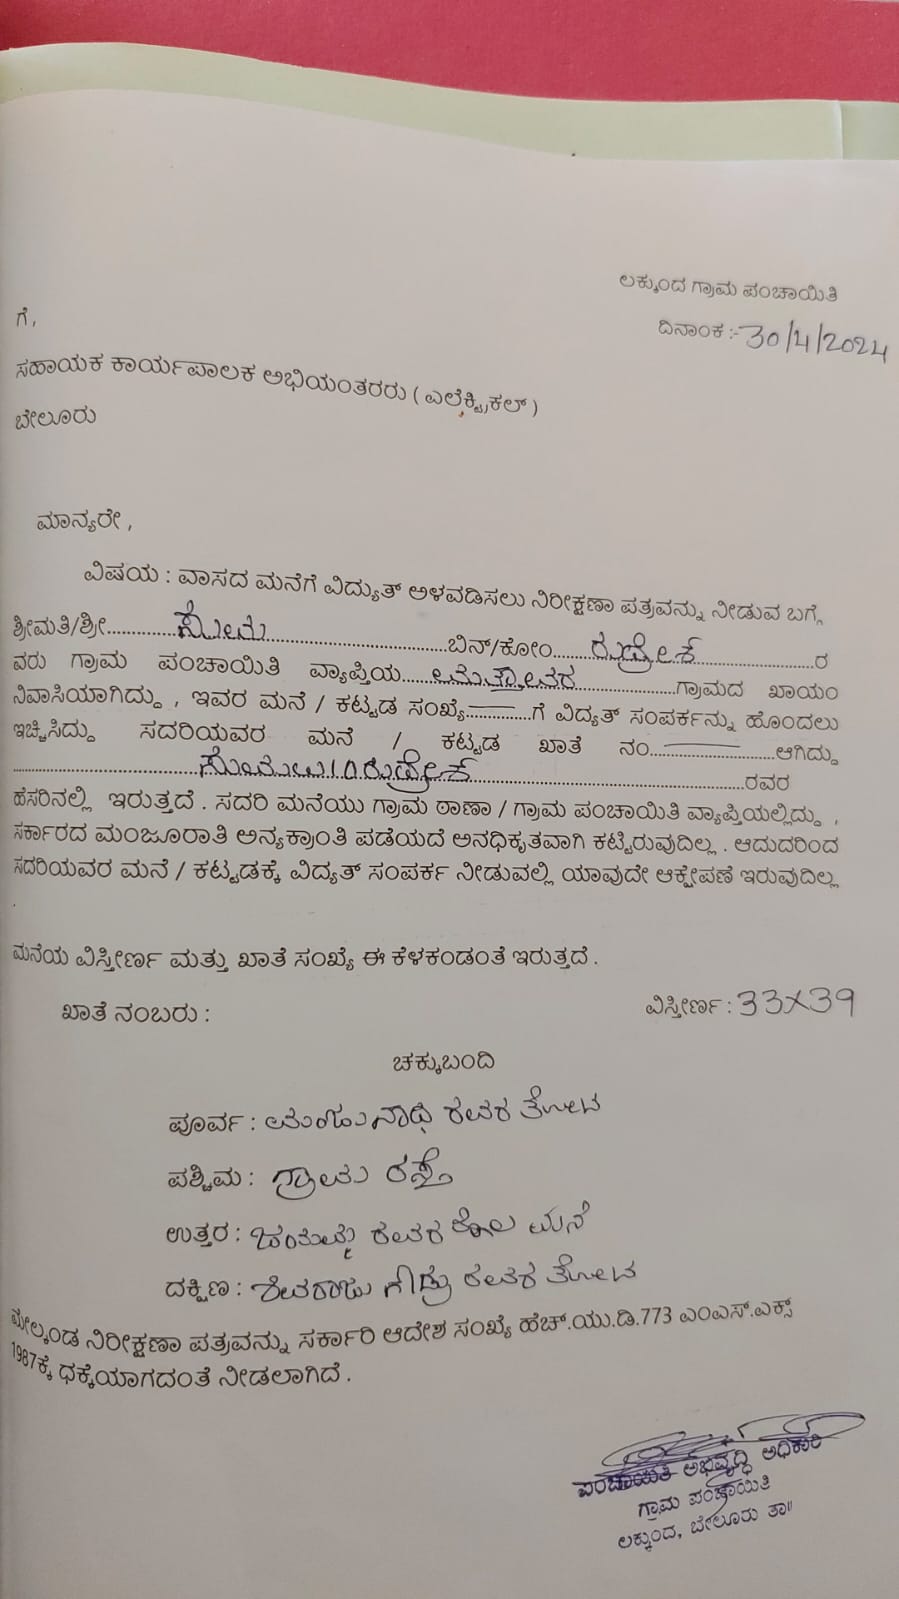 ಲಕ್ಕುಂದ ಗ್ರಾಮ ಪಂಚಾಯಿತಿ
ದಿನಾಂಕ :- 30/4/2024
ಗೆ,
ಸಹಾಯಕ ಕಾರ್ಯಪಾಲಕ ಅಭಿಯಂತರರು ( ಎಲೆಕ್ಟ್ರಿಕಲ್ )
ಬೇಲೂರು
ಮಾನ್ಯರೇ ,
ವಿಷಯ : ವಾಸದ ಮನೆಗೆ ವಿದ್ಯುತ್ ಅಳವಡಿಸಲು ನಿರೀಕ್ಷಣಾ ಪತ್ರವನ್ನು ನೀಡುವ ಬಗ್ಗೆ
ಶ್ರೀಮತಿ/ಶ್ರೀ.............ಸೋಮ..............................ಬಿನ್/ಕೋಂ.......ರುದ್ರೇಶ್.....................ರ
ವರು ಗ್ರಾಮ ಪಂಚಾಯಿತಿ ವ್ಯಾಪ್ತಿಯ ..........................................ಗ್ರಾಮದ ಖಾಯಂ
ನಿವಾಸಿಯಾಗಿದ್ದು , ಇವರ ಮನೆ / ಕಟ್ಟಡ ಸಂಖ್ಯೆ..............ಗೆ ವಿದ್ಯತ್ ಸಂಪರ್ಕನ್ನು ಹೊಂದಲು
ಇಚ್ಚಿಸಿದ್ದು ಸದರಿಯವರ ಮನೆ / ಕಟ್ಟಡ ಖಾತೆ ನಂ......................ಆಗಿದ್ದು
..................................ರುದ್ರೇಶ್..................................................ರವರ
ಹೆಸರಿನಲ್ಲಿ ಇರುತ್ತದೆ . ಸದರಿ ಮನೆಯು ಗ್ರಾಮ ಠಾಣಾ / ಗ್ರಾಮ ಪಂಚಾಯಿತಿ ವ್ಯಾಪ್ತಿಯಲ್ಲಿದ್ದು ,
ಸರ್ಕಾರದ ಮಂಜೂರಾತಿ ಅನ್ಯಕ್ರಾಂತಿ ಪಡೆಯದೆ ಅನಧಿಕೃತವಾಗಿ ಕಟ್ಟಿರುವುದಿಲ್ಲ . ಆದುದರಿಂದ
ಸದರಿಯವರ ಮನೆ / ಕಟ್ಟಡಕ್ಕೆ ವಿದ್ಯತ್ ಸಂಪರ್ಕ ನೀಡುವಲ್ಲಿ ಯಾವುದೇ ಆಕ್ಷೇಪಣೆ ಇರುವುದಿಲ್ಲ
.
ಮನೆಯ ವಿಸ್ತೀರ್ಣ ಮತ್ತು ಖಾತೆ ಸಂಖ್ಯೆ ಈ ಕೆಳಕಂಡಂತೆ ಇರುತ್ತದೆ .
ಖಾತೆ ನಂಬರು : ವಿಸ್ತೀರ್ಣ : 33X39
ಚಕ್ಕುಬಂದಿ
ಪೂರ್ವ : ಮಂಜುನಾಥ ರವರ ತೋಟ
ಪಶ್ಚಿಮ : ಗ್ರಾಮ ರಸ್ತೆ
ಉತ್ತರ : ರವರ ಮನೆ
ದಕ್ಷಿಣ : ರವರ ತೋಟ
ಮೇಲ್ಕಂಡ ನಿರೀಕ್ಷಣಾ ಪತ್ರವನ್ನು ಸರ್ಕಾರಿ ಆದೇಶ ಸಂಖ್ಯೆ ಹೆಚ್.ಯು.ಡಿ.773 ಎಂಎಸ್.ಎಕ್ಸ್
1987ಕ್ಕೆ ಧಕ್ಕೆಯಾಗದಂತೆ ನೀಡಲಾಗಿದೆ .
ಪಂಚಾಯಿತಿ ಅಭಿವೃದ್ಧಿ ಅಧಿಕಾರಿ
ಗ್ರಾಮ ಪಂಚಾಯಿತಿ
ಲಕ್ಕುಂದ, ಬೇಲೂರು ತಾ||